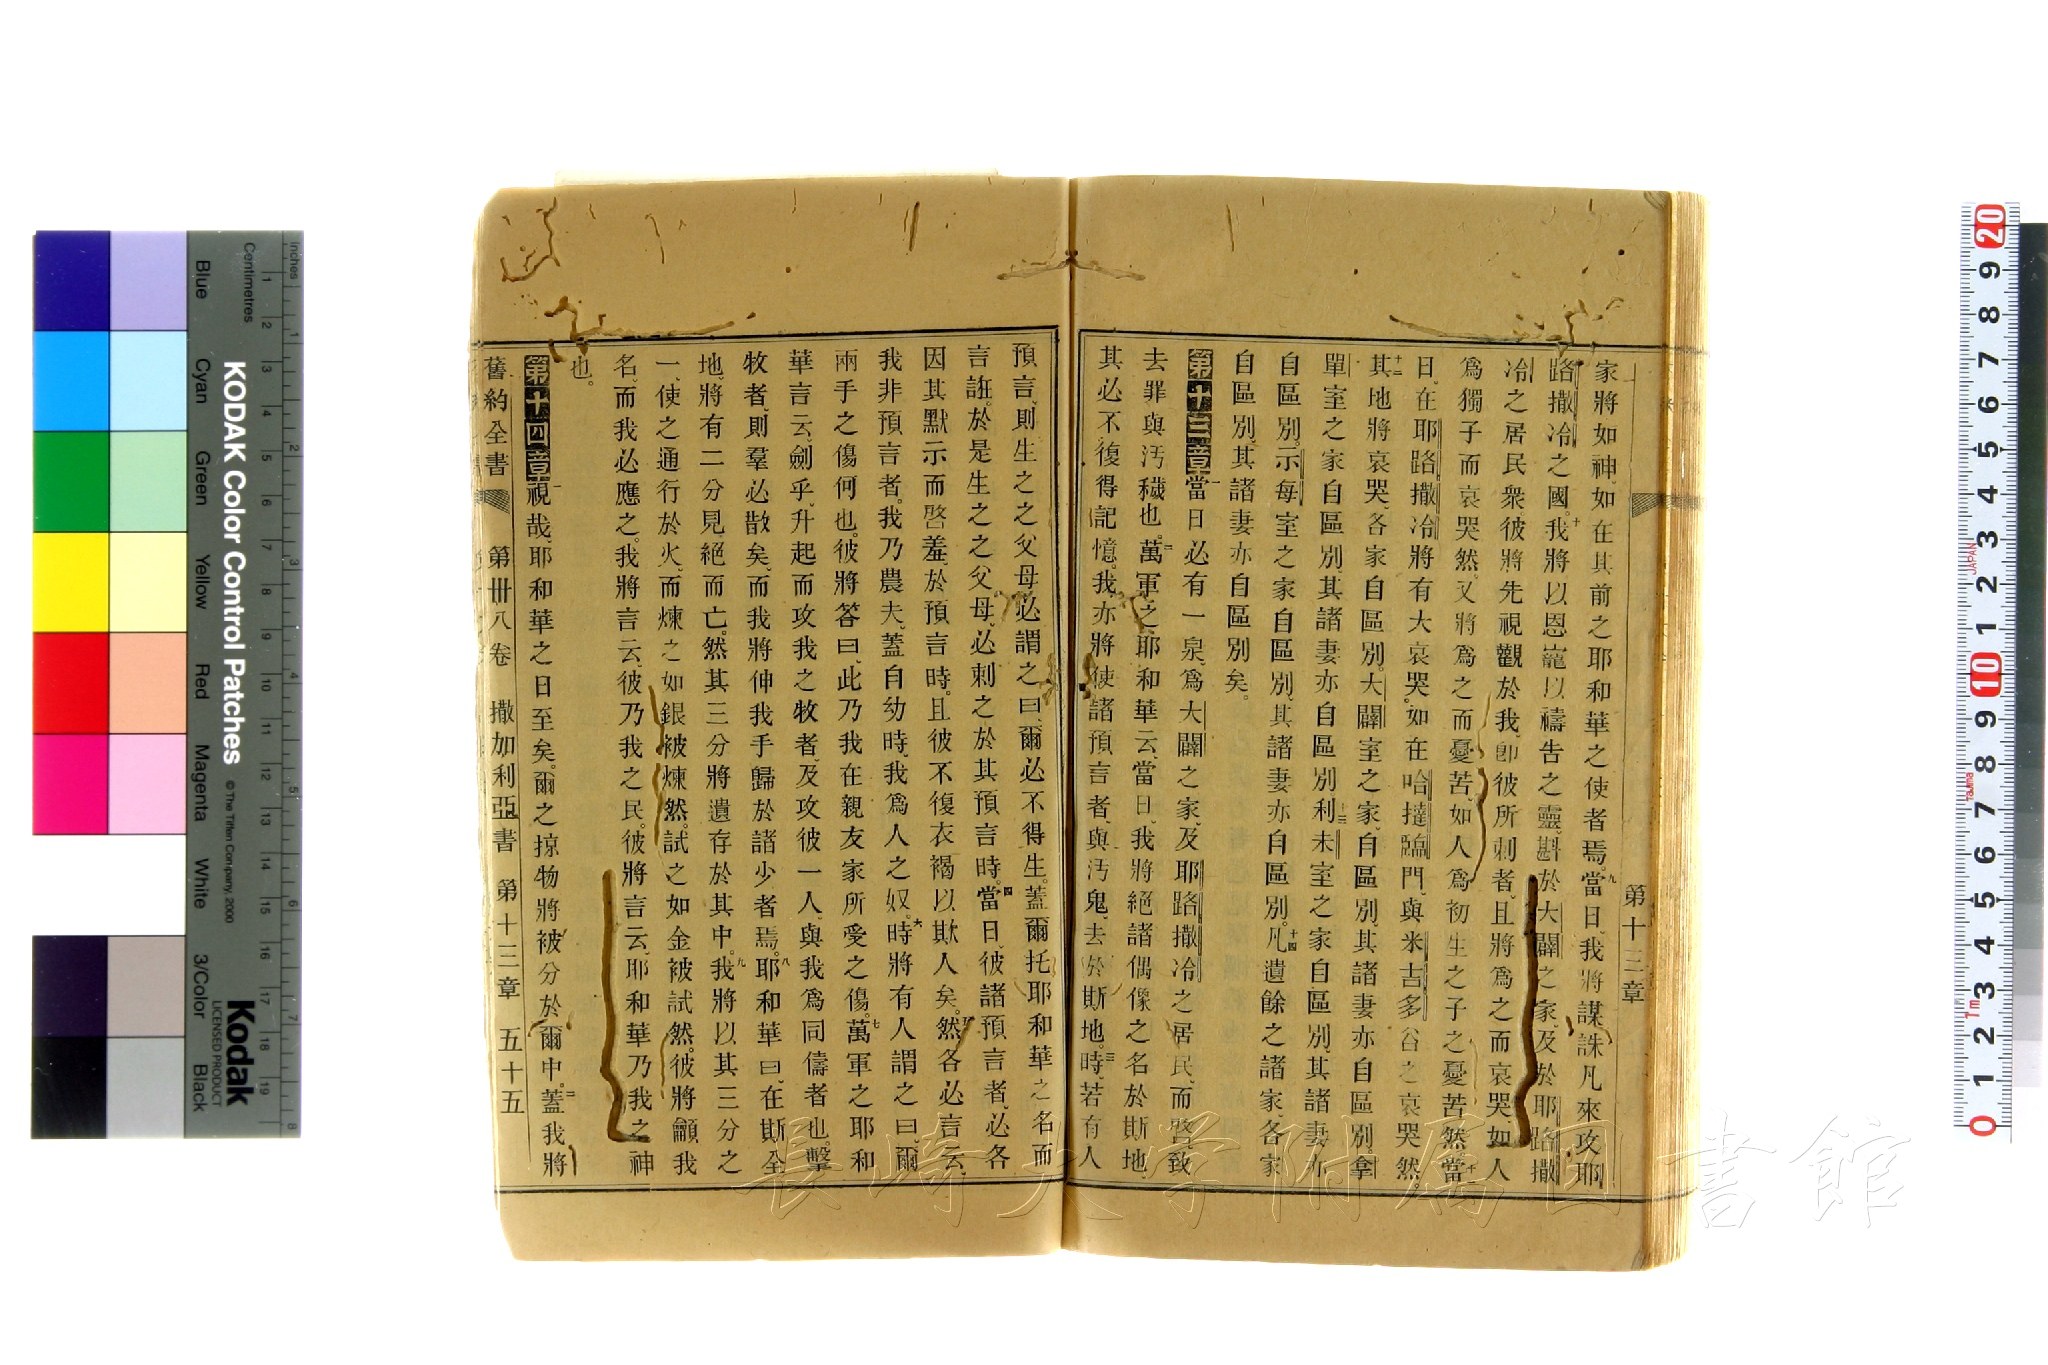 第十三章
家將如神、如在其前之耶和華之使者焉。九當日、我將謀誅凡來攻耶
路撒冷之國。十我將以恩寵以禱告之靈、斟於大闢之家、及於耶路撒
冷之居民衆。彼將先視觀於我、卽彼所刺者、且將爲之而哀哭、如人
爲獨子而哀哭然。又將爲之而憂苦、如人爲初生之子之憂苦然。十一當
日、在耶路撒冷將有大哀哭。如在哈撻臨門、與米吉多谷之哀哭然。
十二其地將哀哭、各家自區別。大闢室之家、自區別、其諸妻亦自區別。拿
單室之家自區別、其諸妻亦自區別。十三利未室之家自區別、其諸妻亦
自區別。示每室之家自區別、其諸妻亦自區別。十四凡遺餘之諸家、各家
自區別、其諸妻亦自區別矣。
第十三章一當日必有一泉、爲大闢之家、及耶路撒冷之居民、而啓致
去罪與汚穢也。二萬軍之耶和華云、當日、我將絕諸偶像之名於斯地、
其必不復得記憶。我亦將使諸預言者、與汚鬼、去於斯地。三時、若有人
預言、則生之之父母必謂之曰、爾必不得生。蓋爾托耶和華之名而
言誑。於是生之之父母、必刺之於其預言時。四當日、彼諸預言者、必各
因其默示而啓羞、於預言時。且彼不復衣褐以欺人矣。五然各必言云、
我非預言者。我乃農夫。蓋自幼時、我爲人之奴。六時將有人謂之曰、爾
兩手之傷何也。彼將答曰、此乃我在親友家所受之傷。七萬軍之耶和
華言云、劍乎、升起而攻我之牧者、及攻彼一人、與我爲同儔者也。擊
牧者、則羣必散矣。而我將伸我手歸於諸少者焉。八耶和華曰、在斯全
地、將有二分見絕而亡。然其三分將遺存於其中。九我將以其三分之
一、使之通行於火、而煉之如銀被煉然。試之如金被試然。彼將籲我
名、而我必應之。我將言云、彼乃我之民。彼將言云、耶和華乃我之神
也。
第十四章一視哉、耶和華之日至矣。爾之掠物將被分於爾中。二蓋我將
舊約全書 第卅八卷 撒加利亞書 第十三章 五十五
KODAK Color Control Patches
© The Tiffen Company, 2000
Kodak
LICENSED PRODUCT
Inches
Centimetres
Blue
Cyan
Green
Yellow
Red
Magenta
White
3/Color
Black
1 2 3 4 5 6 7 8 9 10 11 12 13 14 15 16 17 18 19
1 2 3 4 5 6 7 8
20 9 8 7 6 5 4 3 2 1 10 9 8 7 6 5 4 3 2 1 0
JAPAN
長崎大学附属図書館